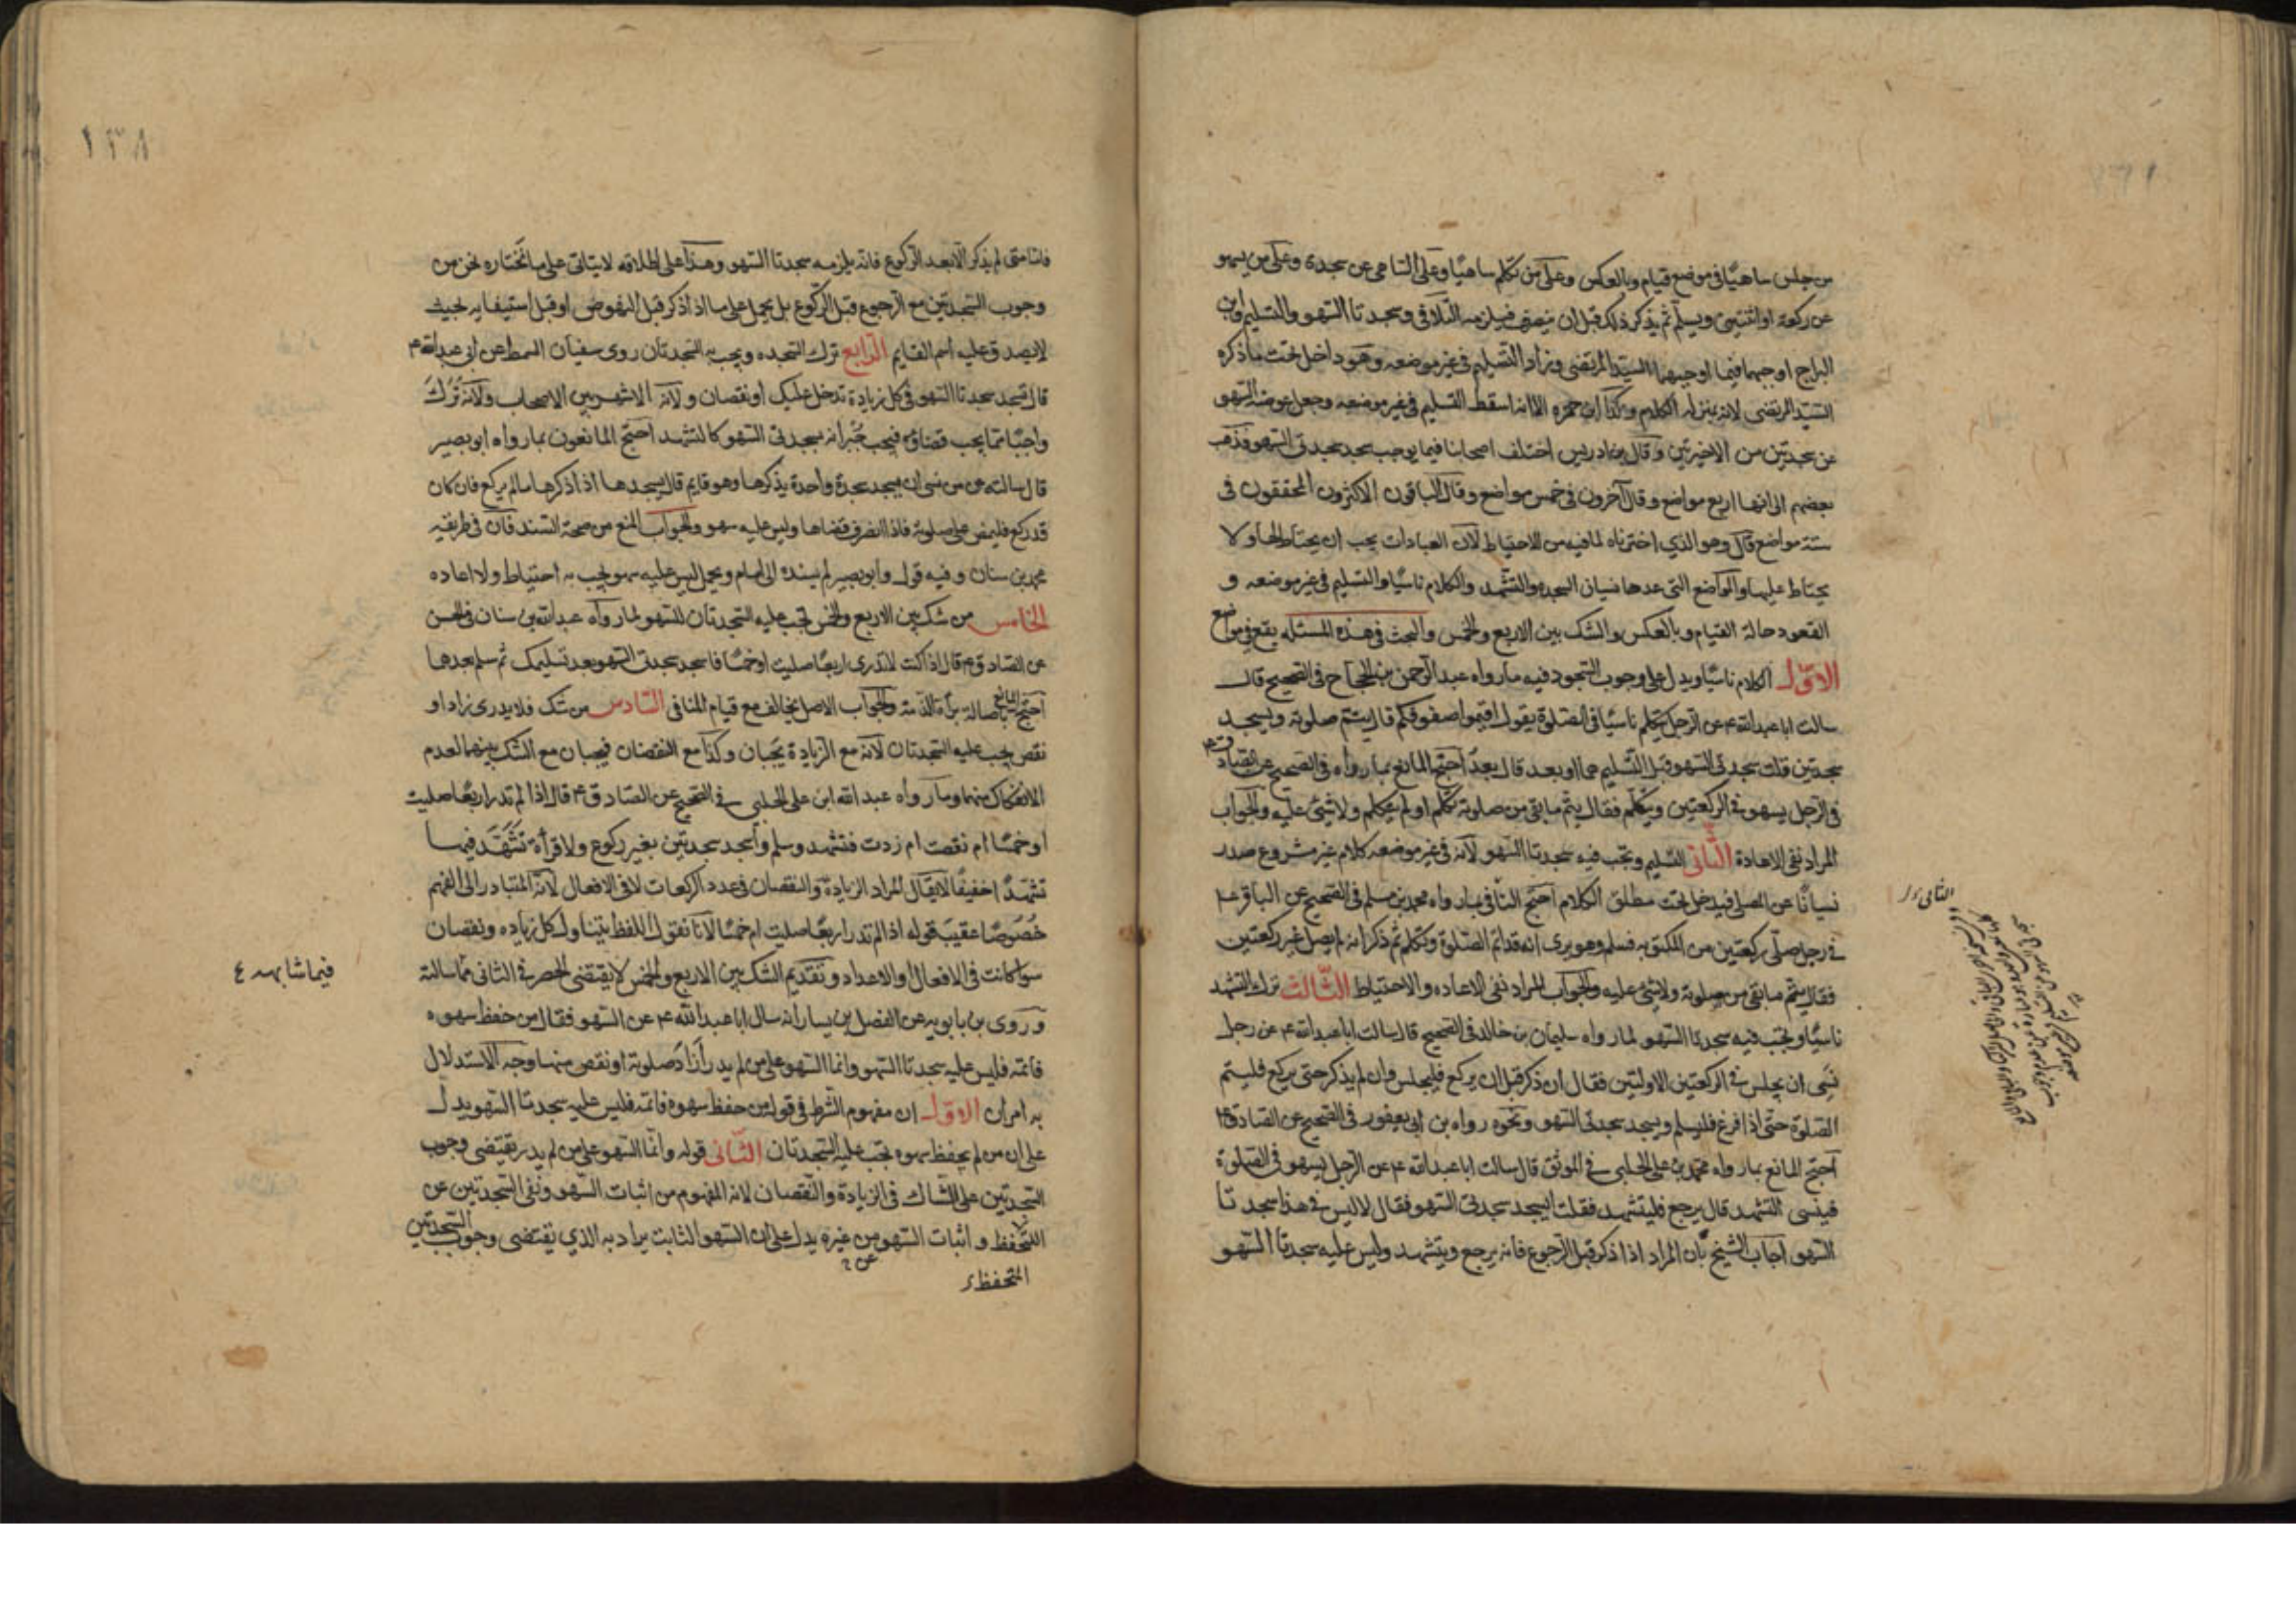 من جلس ساهيًا فى موضع قيام وبالعكس وعلى من تكلم ساهيًا وعلى الساهى عن سجدة وعلى من يسهو
عن ركعة او اثنتين ويسلم ثم يذكر ذلك قبل ان ينصرف فيلزمه التلافى وسجدتا السهو والتسليم وابن
البراج اوجبهما فيما اوجبهما السيد المرتضى وزاد التسليم فى غير موضعه وهو داخل تحت ما ذكره
السيد المرتضى لانه بمنزلة الكلام وكذا ابن حمزه الا انه اسقط التسليم فى غير موضعه وجعل عوضه السهو
عن سجدتين من الاخيرتين وقال بن ادريس اختلف اصحابنا فيما يوجب سجدتى السهو فذهب
بعضهم الى انها اربع مواضع وقال آخرون فى خمس مواضع وقال الباقون الاكثرون المحققون فى
ستة مواضع قال وهو الذي اخترناه لما فيه من الاحتياط لان العبادات يجب ان يحتاط لها ولا
يحتاط عليها والمواضع التى عدها نسيان السجده والتشهد والكلام ناسيًا والتسليم فى غير موضعه و
القعود حالة القيام وبالعكس والشك بين الاربع والخمس والبحث فى هذه المسئله يقع فى مواضع
الاوّل الكلام ناسيًا ويدل على وجوب السجود فيه ما رواه عبد الرحمن بن الحجاج فى الصحيح قال
سالت ابا عبدالله ع عن الرجل يتكلم ناسيًا فى الصلوة يقول اقيموا صفوفكم قال يتم صلوته ويسجد
سجدتين قلت سجدتى السهو قبل التسليم هما او بعد قال بعد احتج المانع بما رواه فى الصحيح عن الصادق ع
فى الرجل يسهو فى الركعتين ويتكلم فقال يتم ما بقى من صلوته تكلم او لم يتكلم ولا شئ عليه والجواب
المراد نفى الاعادة الثّانى التسليم ويجب فيه سجدتا السهو لانه فى غير موضعه كلام غير مشروع صدر
نسيانًا عن المصلى فيدخل تحت مطلق الكلام احتج النافى بما رواه محمد بن مسلم فى الصحيح عن الباقر ع
فى رجل صلّى ركعتين من المكتوبه فسلم وهو يرى انه قد اتم الصلوة وتكلم ثم ذكر انه لم يصل غير ركعتين
فقال يتم ما بقى من صلوته ولا شئ عليه والجواب المراد نفى الاعاده والاحتياط الثّالث ترك التشهد
ناسيًا ويجب فيه سجدتا السهو لما رواه سليمان بن خالد فى الصحيح قال سالت ابا عبدالله ع عن رجل
نسى ان يجلس فى الركعتين الاولتين فقال ان ذكر قبل ان يركع فليجلس وان لم يذكر حتى يركع فليتم
الصلوة حتى اذا فرغ فليسلم ويسجد سجدتى السهو ونحوه رواه بن ابى يعفور فى الصحيح عن الصادق ع
احتج المانع بما رواه محمد بن على الحلبى فى الموثق قال سالت ابا عبدالله ع عن الرجل يسهو فى الصلوة
فينسى التشهد قال يرجع فليتشهد فقلت ايسجد سجدتى السهو فقال لا ليس فى هذا سجدتا
السهو اجاب الشيخ بان المراد اذا ذكر قبل الرجوع فانه يرجع ويتشهد وليس عليه سجدتا السهو
١٣٨
فامّا متى لم يذكر الا بعد الركوع فانه يلزمه سجدتا السهو وهذا على اطلاقه لا يتاتى على ما نختاره نحن من
وجوب السجدتين مع الرجوع قبل الركوع بل يحمل على ما اذا ذكر قبل النهوض او قبل استيفايه بحيث
لا يصدق عليه اسم القايم الرّابع ترك السجده ويجب به السجدتان روى سفيان السمط عن ابى عبدالله ع
قال تسجد سجدتا السهو فى كل زيادة تدخل عليك او نقصان ولانه الاشهر بين الاصحاب ولانه ترك
واجبًا مما يجب قضاؤه فيجب جبرانه بسجدتى السهو كالتشهد احتج المانعون بما رواه ابو بصير
قال سالته عن من نسى ان يسجد سجدة واحدة يذكرها وهو قايم قال يسجدها اذا ذكرها ما لم يركع فان كان
قد ركع فليمض على صلوته فاذا انصرف قضاها وليس عليه سهو والجواب المنع من صحة السند فان فى طريقه
محمد بن سنان وفيه قول وابو بصير لم يسنده الى امام ويحمل ليس عليه سهو يجب به احتياط ولا اعاده
الخامس من شك بين الاربع والخمس تجب عليه السجدتان للسهو لما رواه عبدالله بن سنان فى الحسن
عن الصادق ع قال اذا كنت لا تدرى اربعًا صليت او خمسًا فاسجد سجدتى السهو بعد تسليمك ثم سلم بعدها
احتج المانع باصالة براءة الذمة والجواب الاصل يخالف مع قيام المنافى السّادس من شك فلا يدرى زاد او
نقص يجب عليه السجدتان لانه مع الزيادة يجبان وكذا مع النقصان فيجبان مع الشك بينهما لعدم
الانفكاك منهما وما رواه عبد الله ابن على الحلبى فى الصحيح عن الصادق ع قال اذا لم تدر اربعًا صليت
او خمسًا ام نقصت ام زدت فتشهد وسلم واسجد سجدتين بغير ركوع ولا قرأة تتشهد فيهما
تشهدًا خفيفًا لا يقال المراد الزيادة والنقصان فى عدد الركعات لا فى الافعال لانه المتبادر الى الفهم
خصوصًا عقيب قوله اذا لم تدر اربعًا صليت ام خمسًا لانا نقول اللفظ يتناول كل زياده ونقصان
سوا كانت فى الافعال او الاعداد وتقديم الشك بين الاربع والخمس لا يقتضى الحصر فى الثانى
فيما شابهه
وروى بن بابويه عن الفضل بن يسار انه سال ابا عبدالله ع عن السهو فقال من حفظ سهوه
فاتمه فليس عليه سجدتا السهو وانما السهو على من لم يدر أزاد صلوته او نقص منها وجه الاستدلال
به امران الاوّل ان مفهوم الشرط فى قوله من حفظ سهوه فاتمه فليس عليه سجدتا السهو يدل
على ان من لم يحفظ سهوه تجب عليه السجدتان الثّانى قوله وانّما السهو على من لم يدر يقتضى وجوب
السجدتين على الشاك فى الزيادة والنقصان لانه المفهوم من اثبات السهو ونفى السجدتين عن
التحفظ واثبات السهو من غيره يدل على ان السهو الثابت يراد به الذي يقتضى وجوب السجدتين
المتحفظ